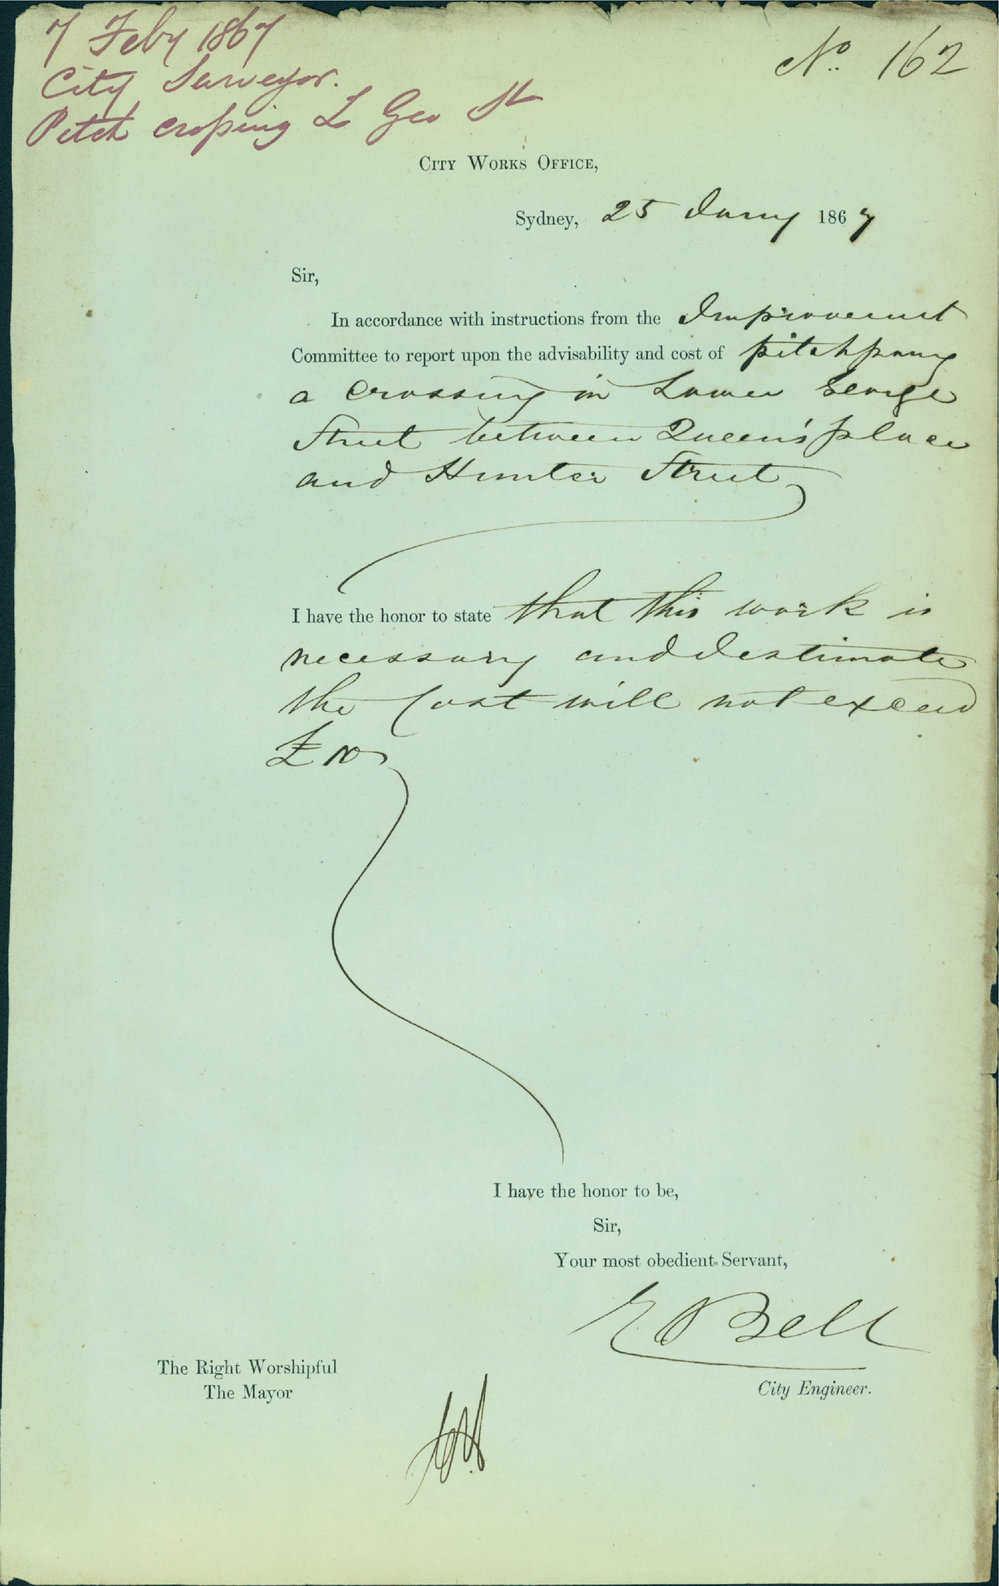 7 Feby 1867
City Surveyor.
Pitch crossing L Geo St
No. 162
City Works Office,
Sydney, 25 Jany 1867
Sir,
In accordance with instructions from the Improvement
Committee to report upon the advisability and cost of pitchpaving
a crossing in Lower George
Street between Queen's place
and Hunter Street
I have the honor to state that this work is
necessary and I estimate
the Cost will not exceed
£10
I have the honor to be,
Sir,
Your most obedient Servant,
E Bell
City Engineer.
The Right Worshipful
The Mayor